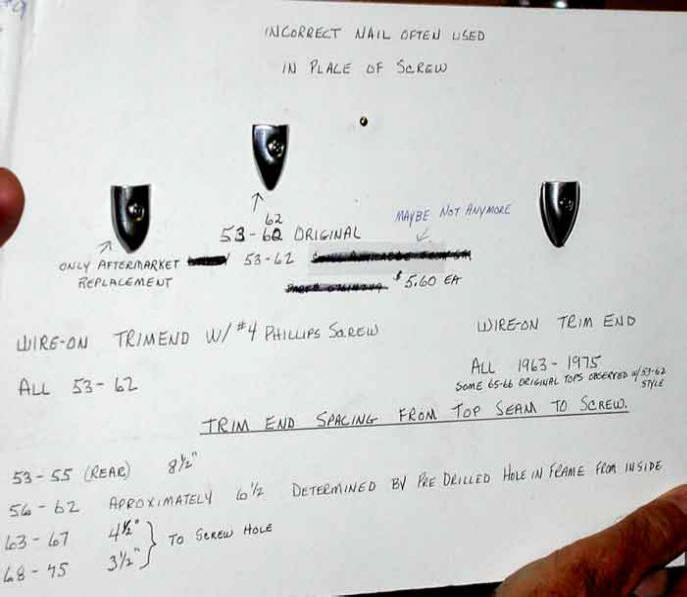 INCORRECT NAIL OFTEN USED
IN PLACE OF SCREW
62
53-62 ORIGINAL
MAYBE NOT ANYMORE
ONLY AFTERMARKET 53-62
REPLACEMENT
$5.60 EA
WIRE-ON TRIMEND W/ #4 PHILLIPS SCREW
ALL 53-62
WIRE-ON TRIM END
ALL 1963-1975
SOME 65-66 ORIGINAL TOPS OBSERVED W/53-62
STYLE
TRIM END SPACING FROM TOP SEAM TO SCREW.
53-55 (REAR) 8½"
56-62 APROXIMATELY 6½ DETERMINED BY PRE DRILLED HOLE IN FRAME FROM INSIDE
63-67 4½"
TO SCREW HOLE
68-75 3½"